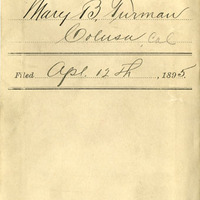 Mary B. Furman
Colusa, Cal
Filed Apl. 12th, 1895.